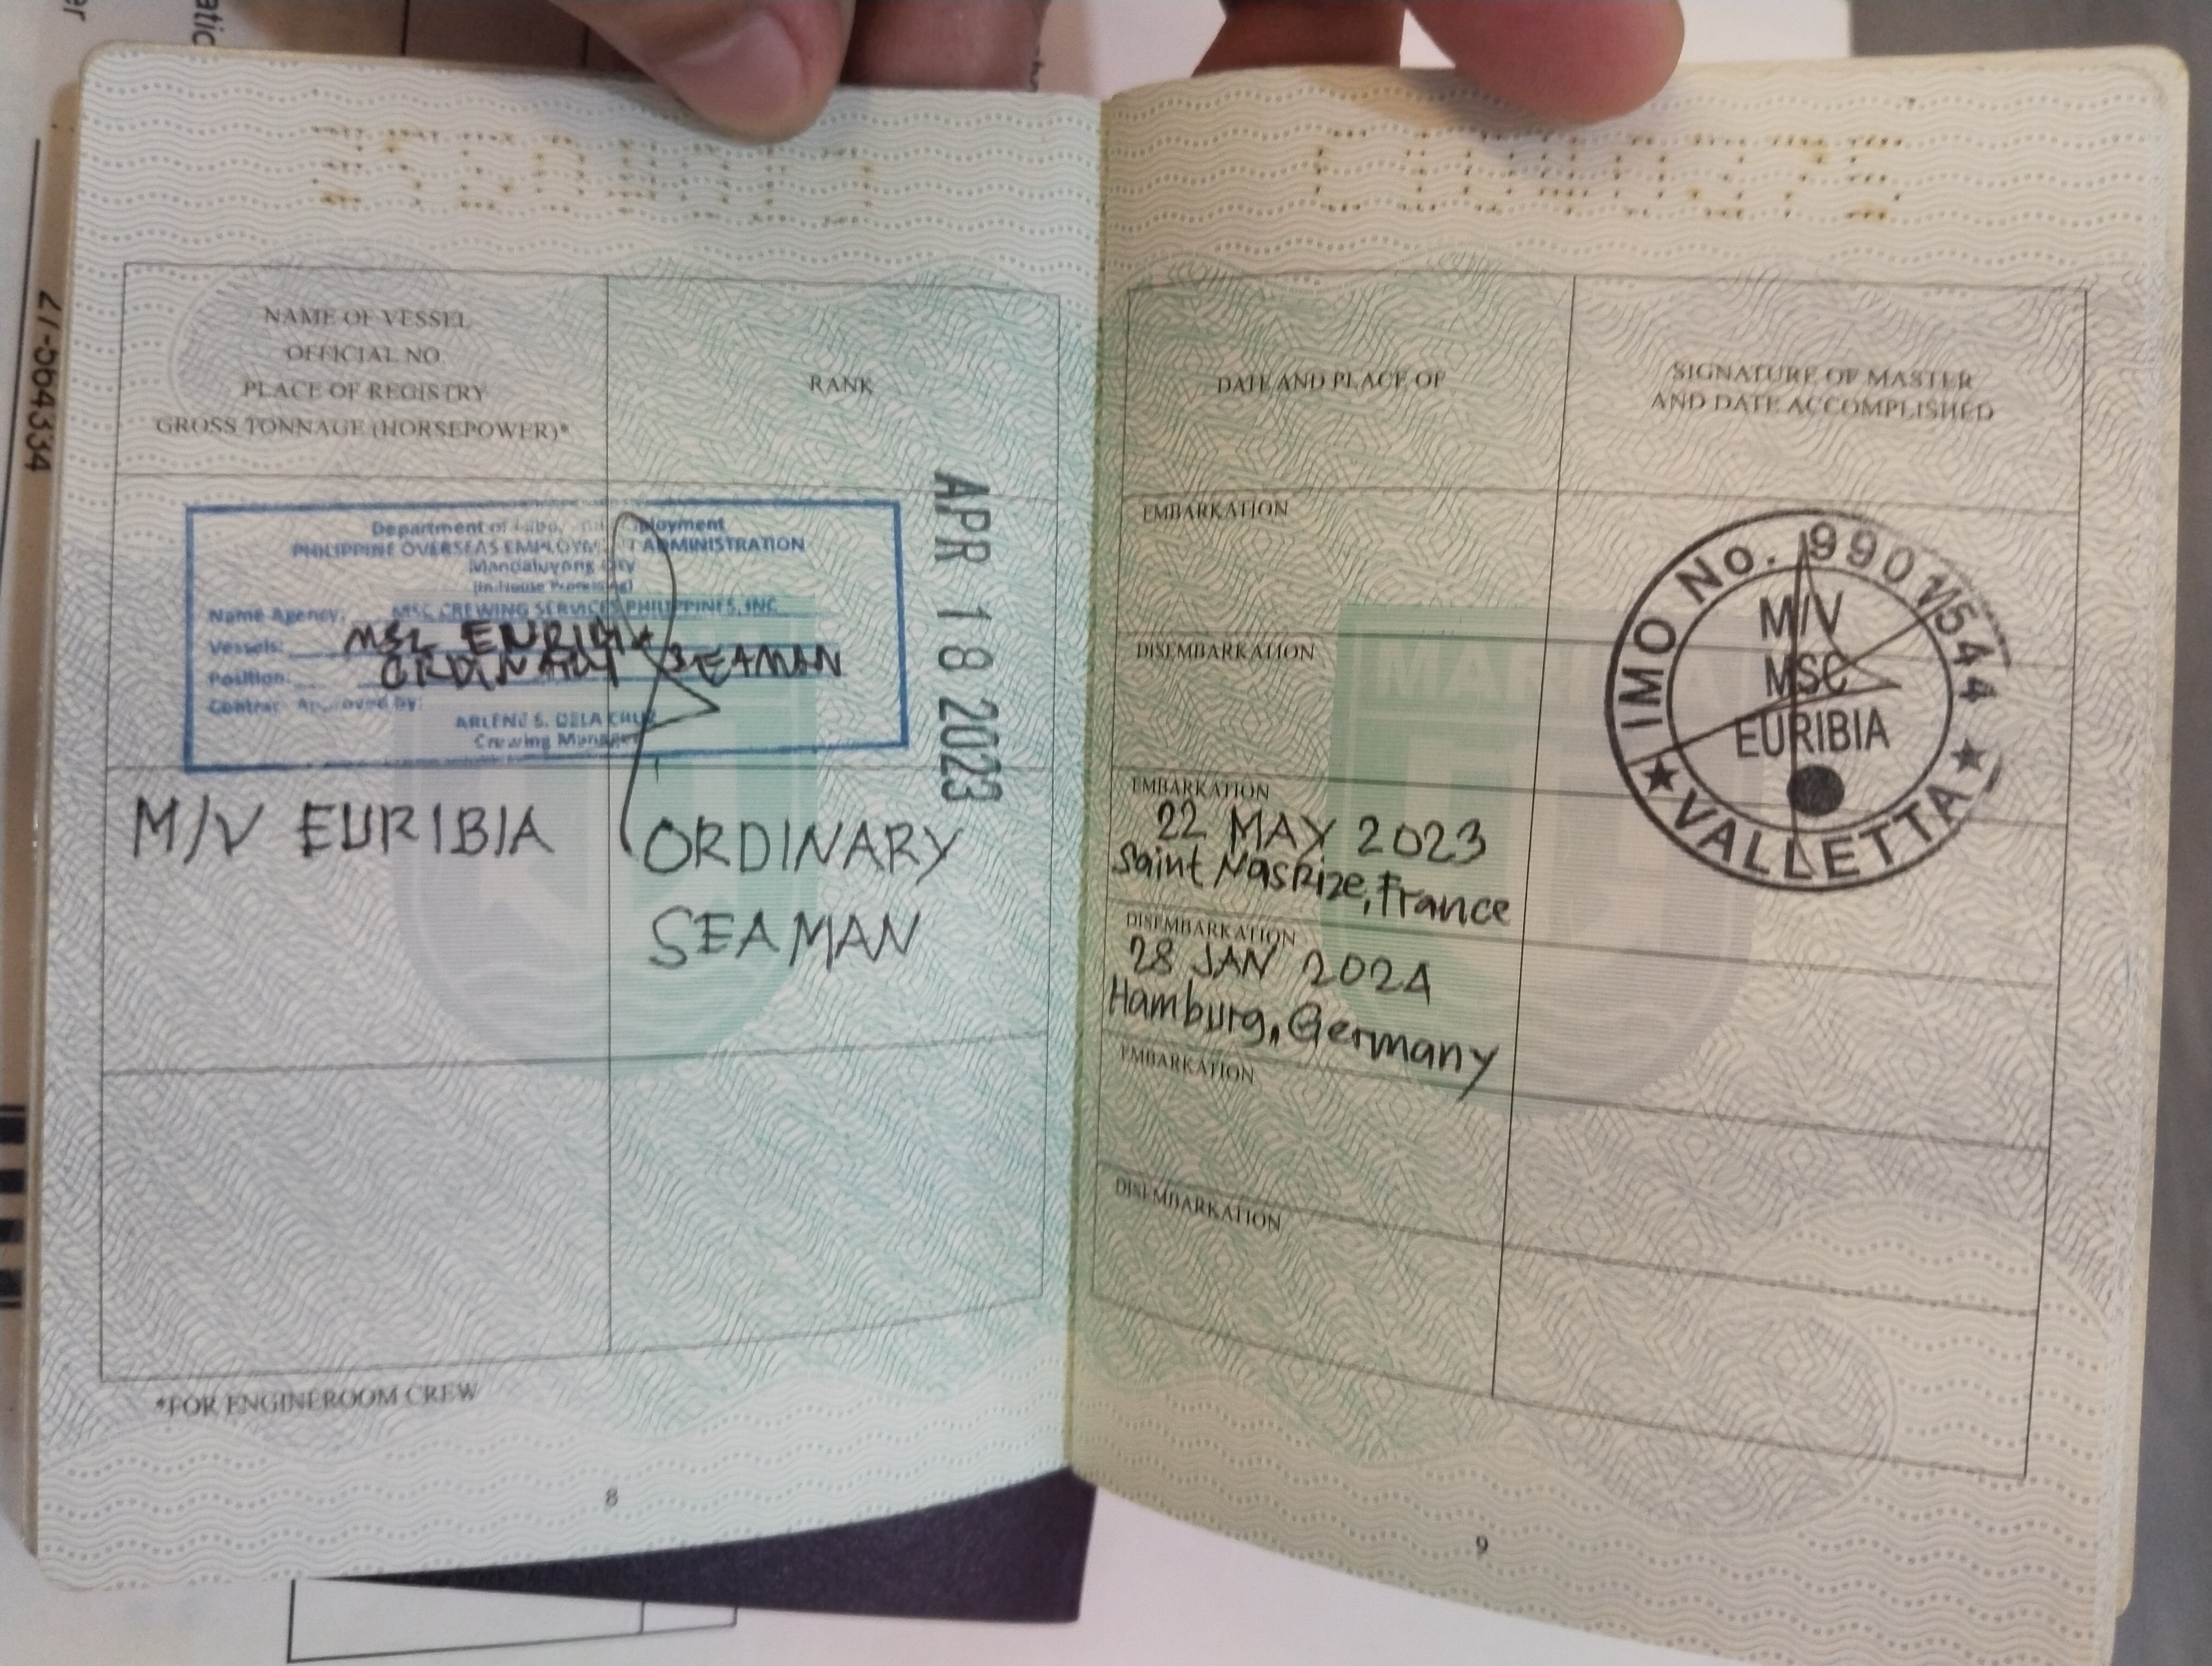 27-bb4334
NAME OF VESSEL
OFFICIAL NO.
PLACE OF REGISTRY
GROSS TONNAGE (HORSEPOWER)*
RANK
Department of
PHILIPPINE OVERSEAS EMPLOYMENT ADMINISTRATION
Mandaluyong City
(In-House Processing)
Name Agency: MSC CREWING SERVICES PHILIPPINES, INC
Vessels: MSC EURIBIA
Position: ORDINARY SEAMAN
Contract Approved by:
ARLENE S. DELA CRUZ
Crewing Manager
APR 18 2023
M/V EURIBIA
ORDINARY
SEAMAN
*FOR ENGINEROOM CREW
8
DATE AND PLACE OF
SIGNATURE OF MASTER
AND DATE ACCOMPLISHED
EMBARKATION
DISEMBARKATION
EMBARKATION
22 MAY 2023
Saint Nasrize, France
DISEMBARKATION
28 JAN 2024
Hamburg, Germany
EMBARKATION
DISEMBARKATION
IMO No. 9901544
M/V
MSC
EURIBIA
★ VALLETTA ★
9